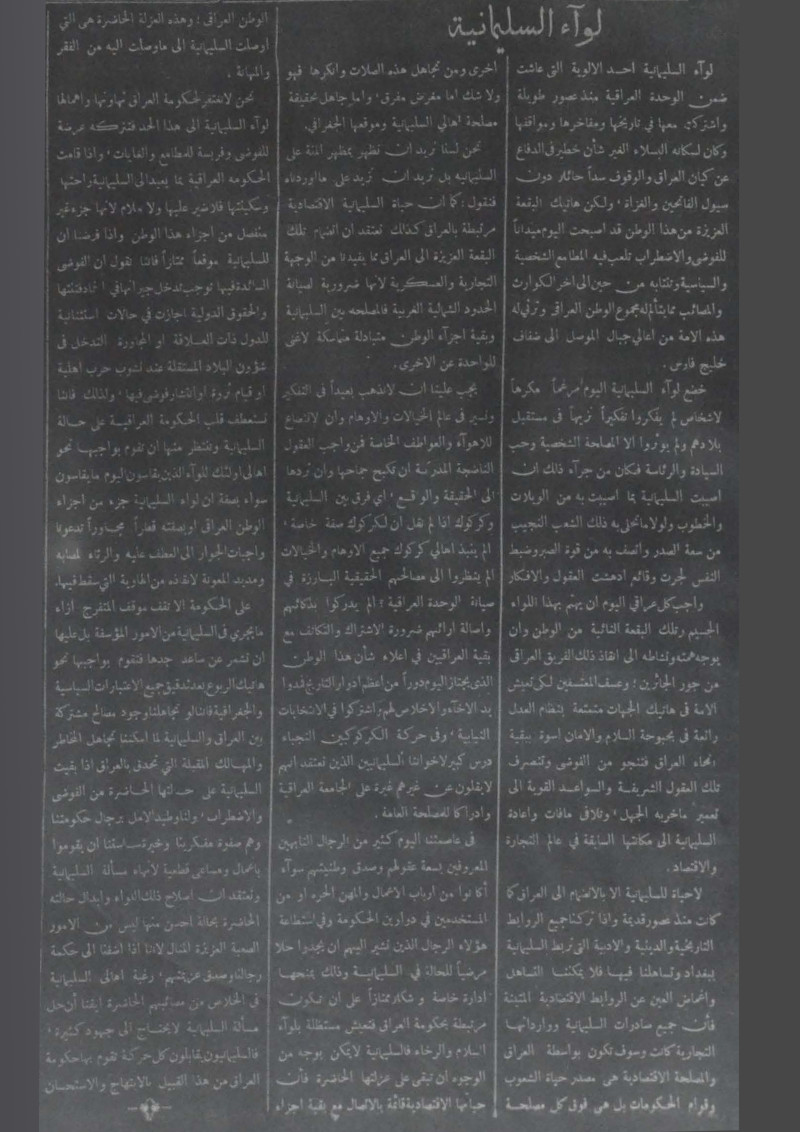 لوآء السليمانية
لوآء السليمانية احد الالوية التى عاشت
ضمن الوحدة العراقية منذ عصور طويلة
واشتركت معها في تاريخها ومفاخرها ومواقفها
وكان لسكانه البسلاء الغير شأن خطير في الدفاع
عن كيان العراق والوقوف سداً حائلا دون
سيول الفاتحين والغزاة ، ولكن هاتيك البقعة
العزيزة من هذا الوطن قد اصبحت اليوم ميداناً
للفوضى والاضطراب تلعب فيه المطامع الشخصية
والسياسية وتنتابه من حين الى اخر الكوارث
والمصائب مما يتألم له مجموع الوطن العراقي وترثى له
هذه الامة من اعالي جبال الموصل الى ضفاف
خليج فارس .
خضع لوآء السليمانية اليوم مرغماً مكرهاً
لاشخاص لم يفكروا تفكيراً نزيهاً فى مستقبل
بلادهم ولم يؤثروا الا المصلحة الشخصية وحب
السيادة والرئاسة فكان من جرآء ذلك ان
اصيبت السليمانية بما اصيبت به من الويلات
والخطوب ولولا ما تحلى به ذلك الشعب النجيب
من سعة الصدر واتصف به من قوة الصبر وضبط
النفس لجرت وقائع ادهشت العقول والافكار
واجب كل عراقي اليوم ان يهتم بهذا اللواء
الجسيم وتلك البقعة النائية من الوطن وان
يوجه همته ونشاطه الى انقاذ ذلك الفريق العراقى
من جور الجائرين ؛ وعسف المعتسفين لكى تعيش
الامة فى هاتيك الجهات متمتعة بنظام العدل
راتعة فى بحبوحة السلام والامان اسوة ببقية
انحاء العراق فتنجو من الفوضى وتنصرف
تلك العقول الشريفة والسواعد القوية الى
تعمير ماخربه الجهل ، وتلافى مافات واعادة
السليمانية الى مكانتها السابقة في عالم التجارة
والاقتصاد .
لاحياة للسليمانية الا بالانضمام الى العراق كما
كانت منذ عصور قديمة واذا تركنا جميع الروابط
التاريخية والدينية والادبية التى تربط السليمانية
ببغداد وتساهلنا فيها فلا يمكننا التساهل
واغماض العين عن الروابط الاقتصادية المتينة
فأن جميع صادرات السليمانية ووارداتها
التجارية كانت وسوف تكون بواسطة العراق
والمصلحة الاقتصادية هى مصدر حياة الشعوب
وقوام الحكومات بل هى فوق كل مصلحة
اخرى ومن تجاهل هذه الصلات وانكرها فهو
ولا شك اما مغرض مفرق ، واما جاهل بحقيقة
مصلحة اهالي السليمانية وموقعها الجغرافي .
نحن لسنا نريد ان نظهر بمظهر المنة على
السليمانيه بل نريد ان نزيد على ما اوردناه
فنقول : كما ان حياة السليمانية الاقتصادية
مرتبطة بالعراق كذلك نعتقد ان انضمام تلك
البقعة العزيزة الى العراق مما يفيدنا من الوجهة
التجارية والعسكرية لأنها ضرورية لصيانة
الحدود الشمالية الغربية فالمصلحه بين السليمانية
وبقية اجزآء الوطن متبادلة متماسكة لاغنى
للواحدة عن الاخرى .
يجب علينا ان لانذهب بعيداً فى التفكير
ونسير فى عالم الخيالات والاوهام وان لانخضاع
للاهوآء والعواطف الخاصة فمن واجب العقول
الناضجة المدربة ان تكبح جماحها وان تردها
الى الحقيقة والواقع ، اي فرق بين السليمانية
وكركوك اذا لم نقل ان لكركوك صفة خاصة ؛
الم ينبذ اهالي كركوك جميع الاوهام والخيالات
الم ينظروا الى مصالحهم الحقيقية البارزة في
صيانة الوحدة العراقية ؟ الم يدركوا بذكائهم
واصالة ارائهم ضرورة الاشتراك والتكاتف مع
بقية العراقيين في اعلاء شأن هذا الوطن
الذى يجتاز اليوم دوراً من اعظم ادوار التاريخ فمدوا
يد الاخآء والاخلاص لهم واشتركوا في الانتخابات
النيابية ، وفى حركة الكركوكيين النجباء
درس كبير لاخواننا السليمانيين الذين نعتقد انهم
لايقلون عن غيرهم غيرة على الجامعة العراقية
وادراكا للمصلحة العامة .
فى عاصمتنا اليوم كثير من الرجال النابهين
المعروفين بسعة عقولهم وصدق وطنيتهم سوآء
أكانوا من ارباب الاعمال والمهن الحره او من
المستخدمين في دواوين الحكومة وفي استطاعة
هؤلاء الرجال الذين نشير اليهم ان يجدوا حلا
مرضياً للحالة في السليمانية وذلك بمنحها
ادارة خاصة وشكلا ممتازاً على ان تكون
مرتبطة بحكومة العراق فتعيش مستظلة بلوآء
السلام والرخاء فالسليمانية لايمكن بوجه من
الوجوه ان تبقى على عزلتها الحاضرة فأن
حياتها الاقتصادية قائمة بالاتصال مع بقية اجزاء
الوطن العراقي ؛ وهذه العزلة الحاضرة هى التي
اوصلت السليمانية الى ماوصلت اليه من الفقر
والمهانة .
نحن لانغتفر لحكومة العراق تهاونها واهمالها
لوآء السليمانية الى هذا الحد فتتركه عرضة
للفوضى وفريسة للمطامع والغايات ، واذا قامت
الحكومه العراقية بما يعيد الى السليمانية راحتها
وسكينتها فلاضير عليها ولا ملام لانها جزء غير
منفصل من اجزاء هذا الوطن واذا فرضنا ان
للسليمانية موقعاً ممتازاً فاننا نقول ان الفوضى
السائدة فيها توجب تدخل جيرانها في اخماد فتنتها
والحقوق الدولية اجازت في حالات استثنائية
للدول ذات العلاقة او المجاورة التدخل فى
شؤون البلاد المستقلة عند نشوب حرب اهلية
او قيام ثروة او انتشار فوضى فيها ، ولذلك فاننا
نستعطف قلب الحكومة العراقية على حالة
السليمانية وننتظر منها ان تقوم بواجبها نحو
اهالى اولئك للوآء الذين يقاسون اليوم مايقاسون
سواء بصفة ان لواء السليمانية جزء من اجزاء
الوطن العراقي او بصفته قطراً مجاوراً تدعونا
واجبات الجوار الى العطف عليه والرثاء لمصابه
ومديد المعونة لانقاذه من الهاوية التى سقط فيها .
على الحكومة الا تقف موقف المتفرج ازاء
مايجري فى السليمانية من الامور المؤسفة بل عليها
ان تشمر عن ساعد جدها فتقوم بواجبها نحو
هاتيك الربوع بعد تدقيق جميع الاعتبارات السياسية
والجغرافية فاننا لو تجاهلنا وجود مصالح مشتركة
بين العراق والسليمانية لما امكننا تجاهل المخاطر
والمهالك المقبلة التي تحدق بالعراق اذا بقيت
السليمانية على حالتها الحاضرة من الفوضى
والاضطراب ، ولنا وطيد الامل برجال حكومتنا
وهم صفوة مفكرينا وخيرة ساستنا ان يقوموا
باعمال ومساعي قطعية لانهاء مسألة السليمانية
ونعتقد ان اصلاح ذلك اللواء وابدال حالته
الحاضرة بحالة احسن منها ليس من الامور
الصعبة العزيزة المنال لاننا اذا اضفنا الى حكمة
رجالنا وصدق عزيمتهم رغبة اهالى السليمانية
فى الخلاص من مصائبهم الحاضرة ايقنا أن حل
مسألة السليمانية لايحتاج الى جهود كثيرة ،
فالسليمانيون يقابلون كل حركة تقوم بها حكومة
العراق من هذا القبيل بالابتهاج والاستحسان